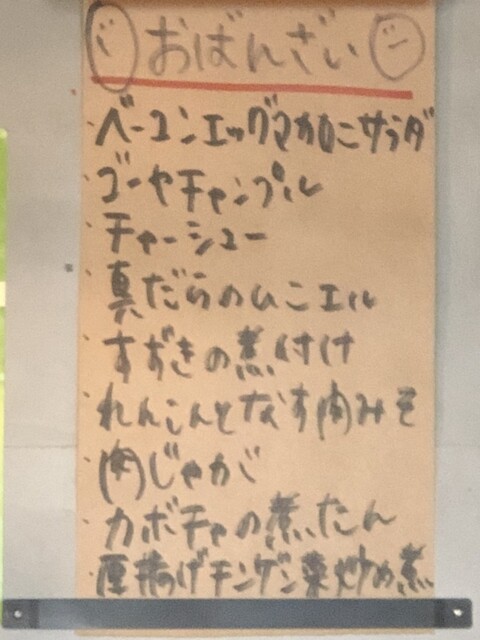 おばんざい
・ベーコンエッグマカロニサラダ
・ゴーヤチャンプル
・チャーシュー
・真だらのムニエル
・すずきの煮付け
・れんこんとなす肉みそ
・肉じゃが
・カボチャの煮たん
・厚揚げチンゲン菜炒め煮